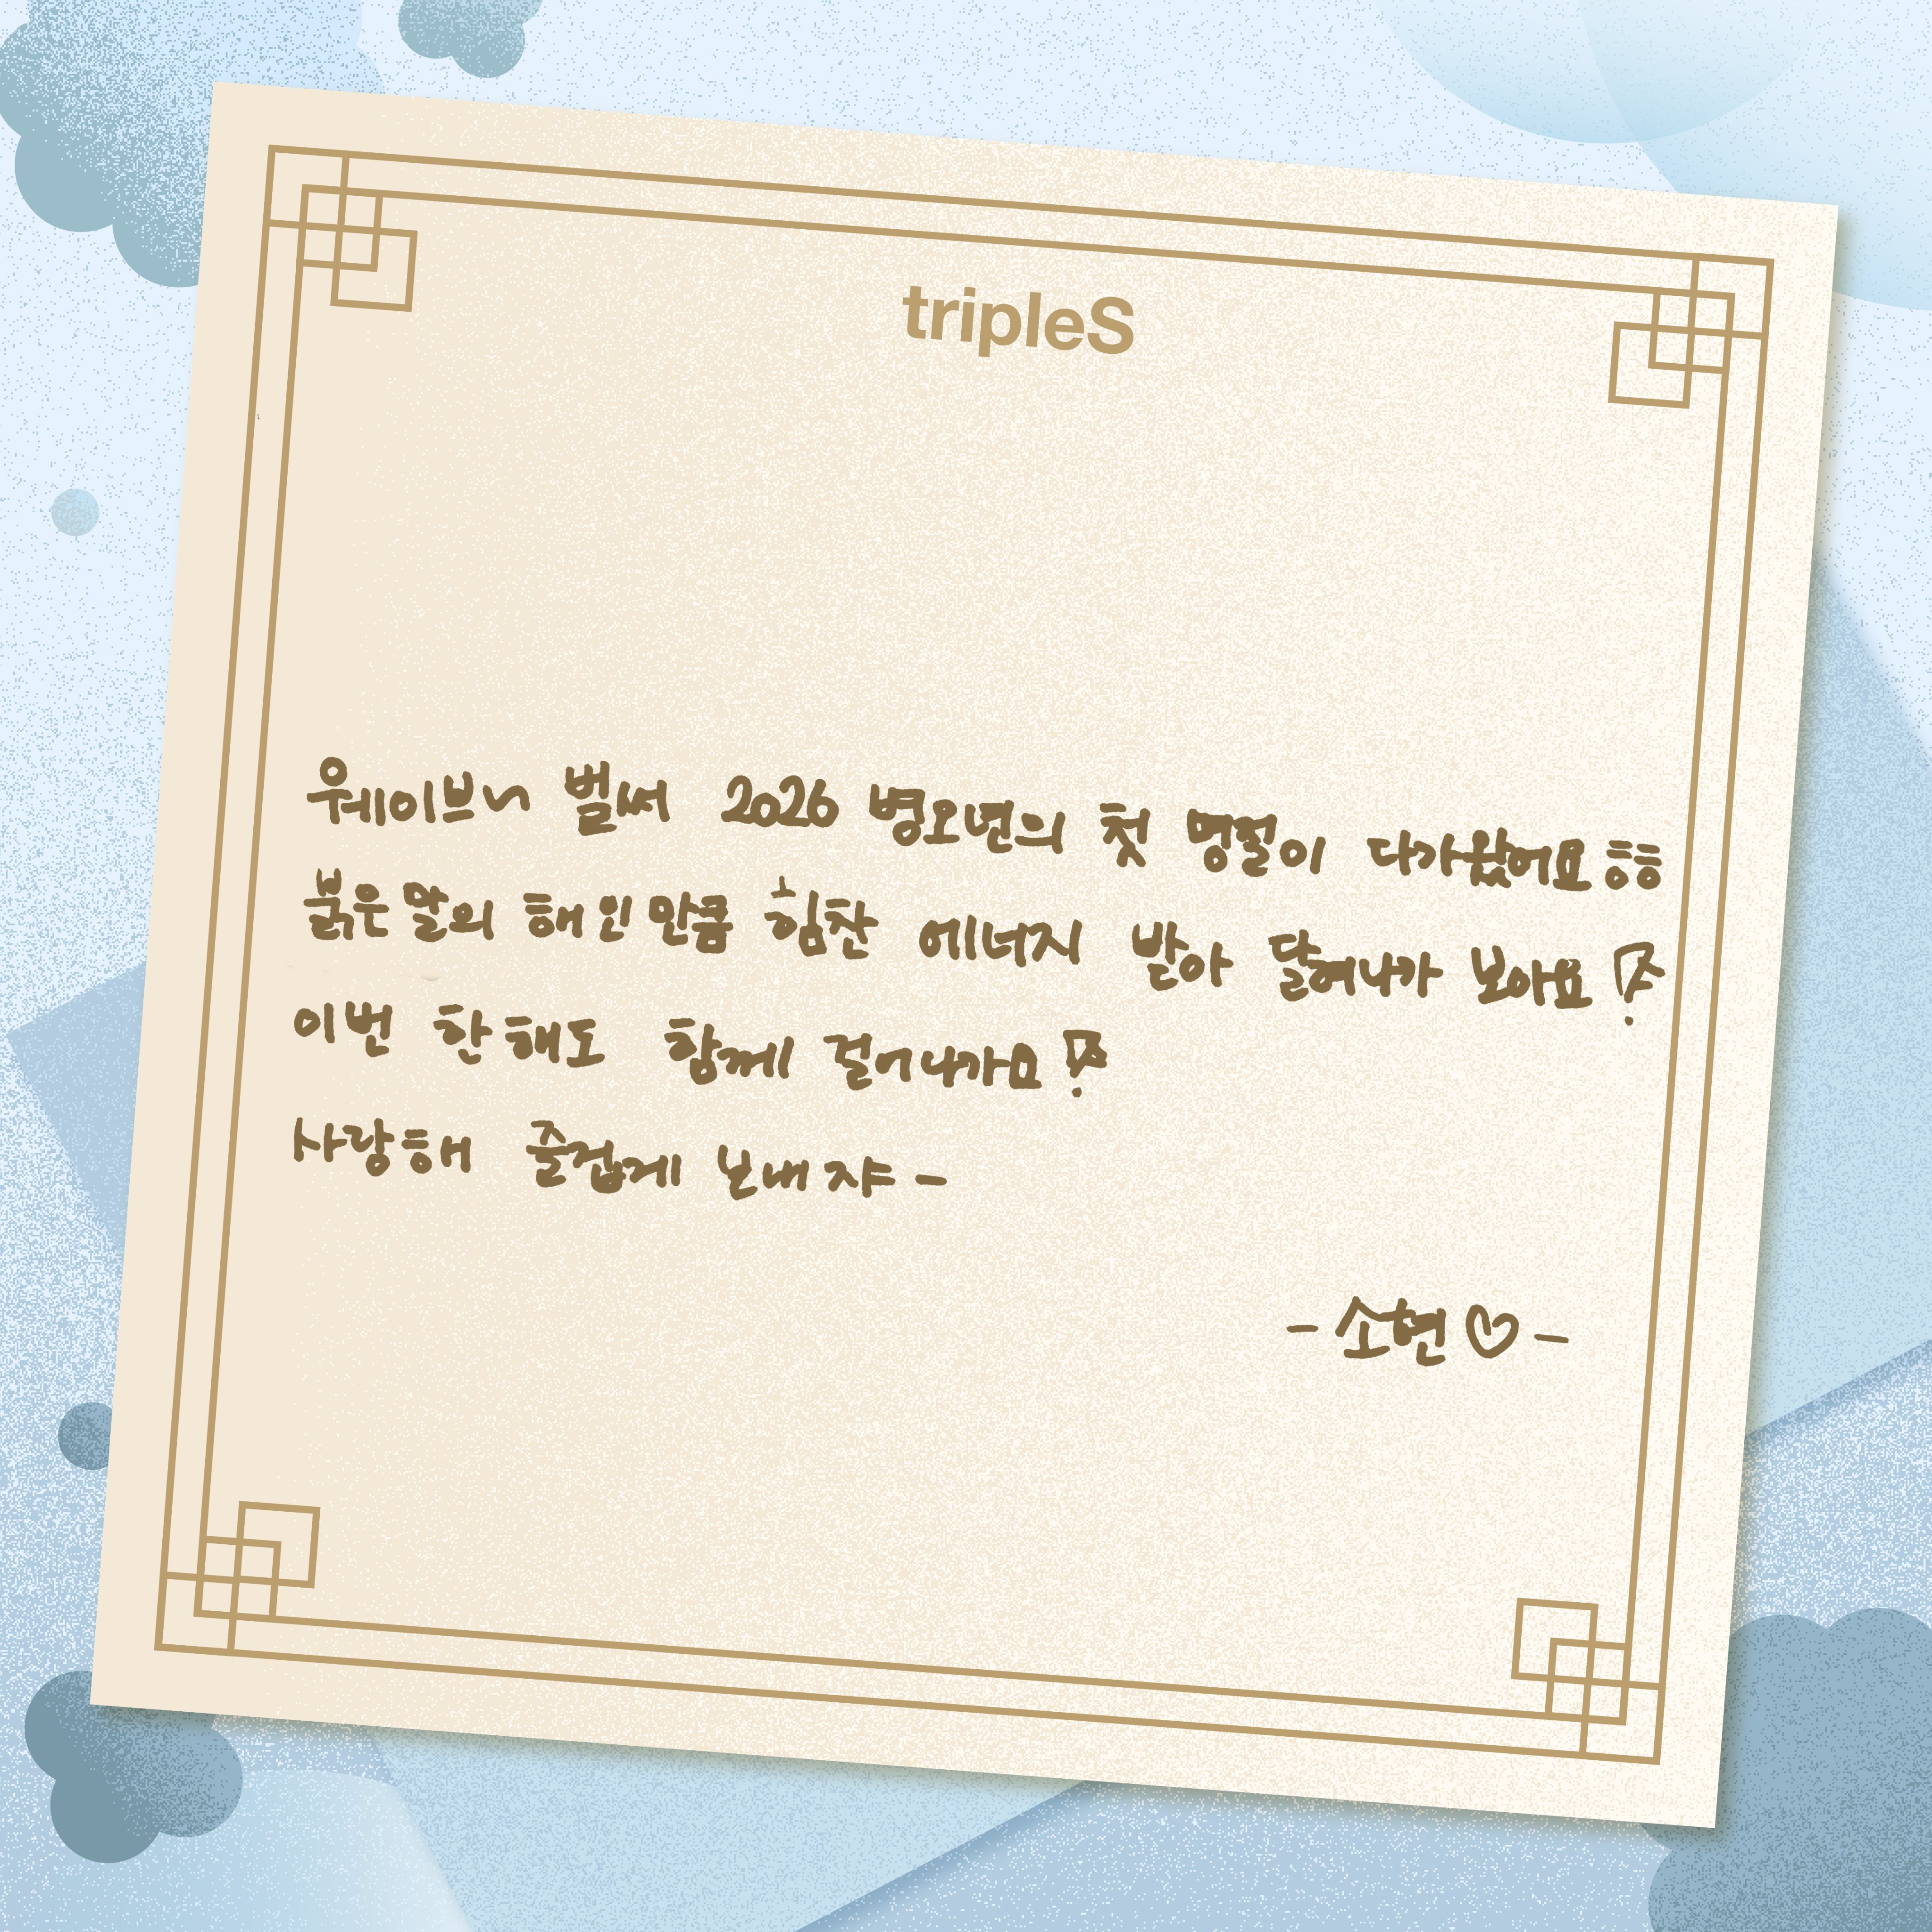 tripleS
웨이브~ 벌써 2026 병오년의 첫 명절이 다가왔어요 ㅎㅎ
붉은 말의 해인만큼 힘찬 에너지 받아 달려나가 보아요!
이번 한해도 함께 걸어나가요!
사랑해 즐겁게 보내쟈-
- 소현♡ -